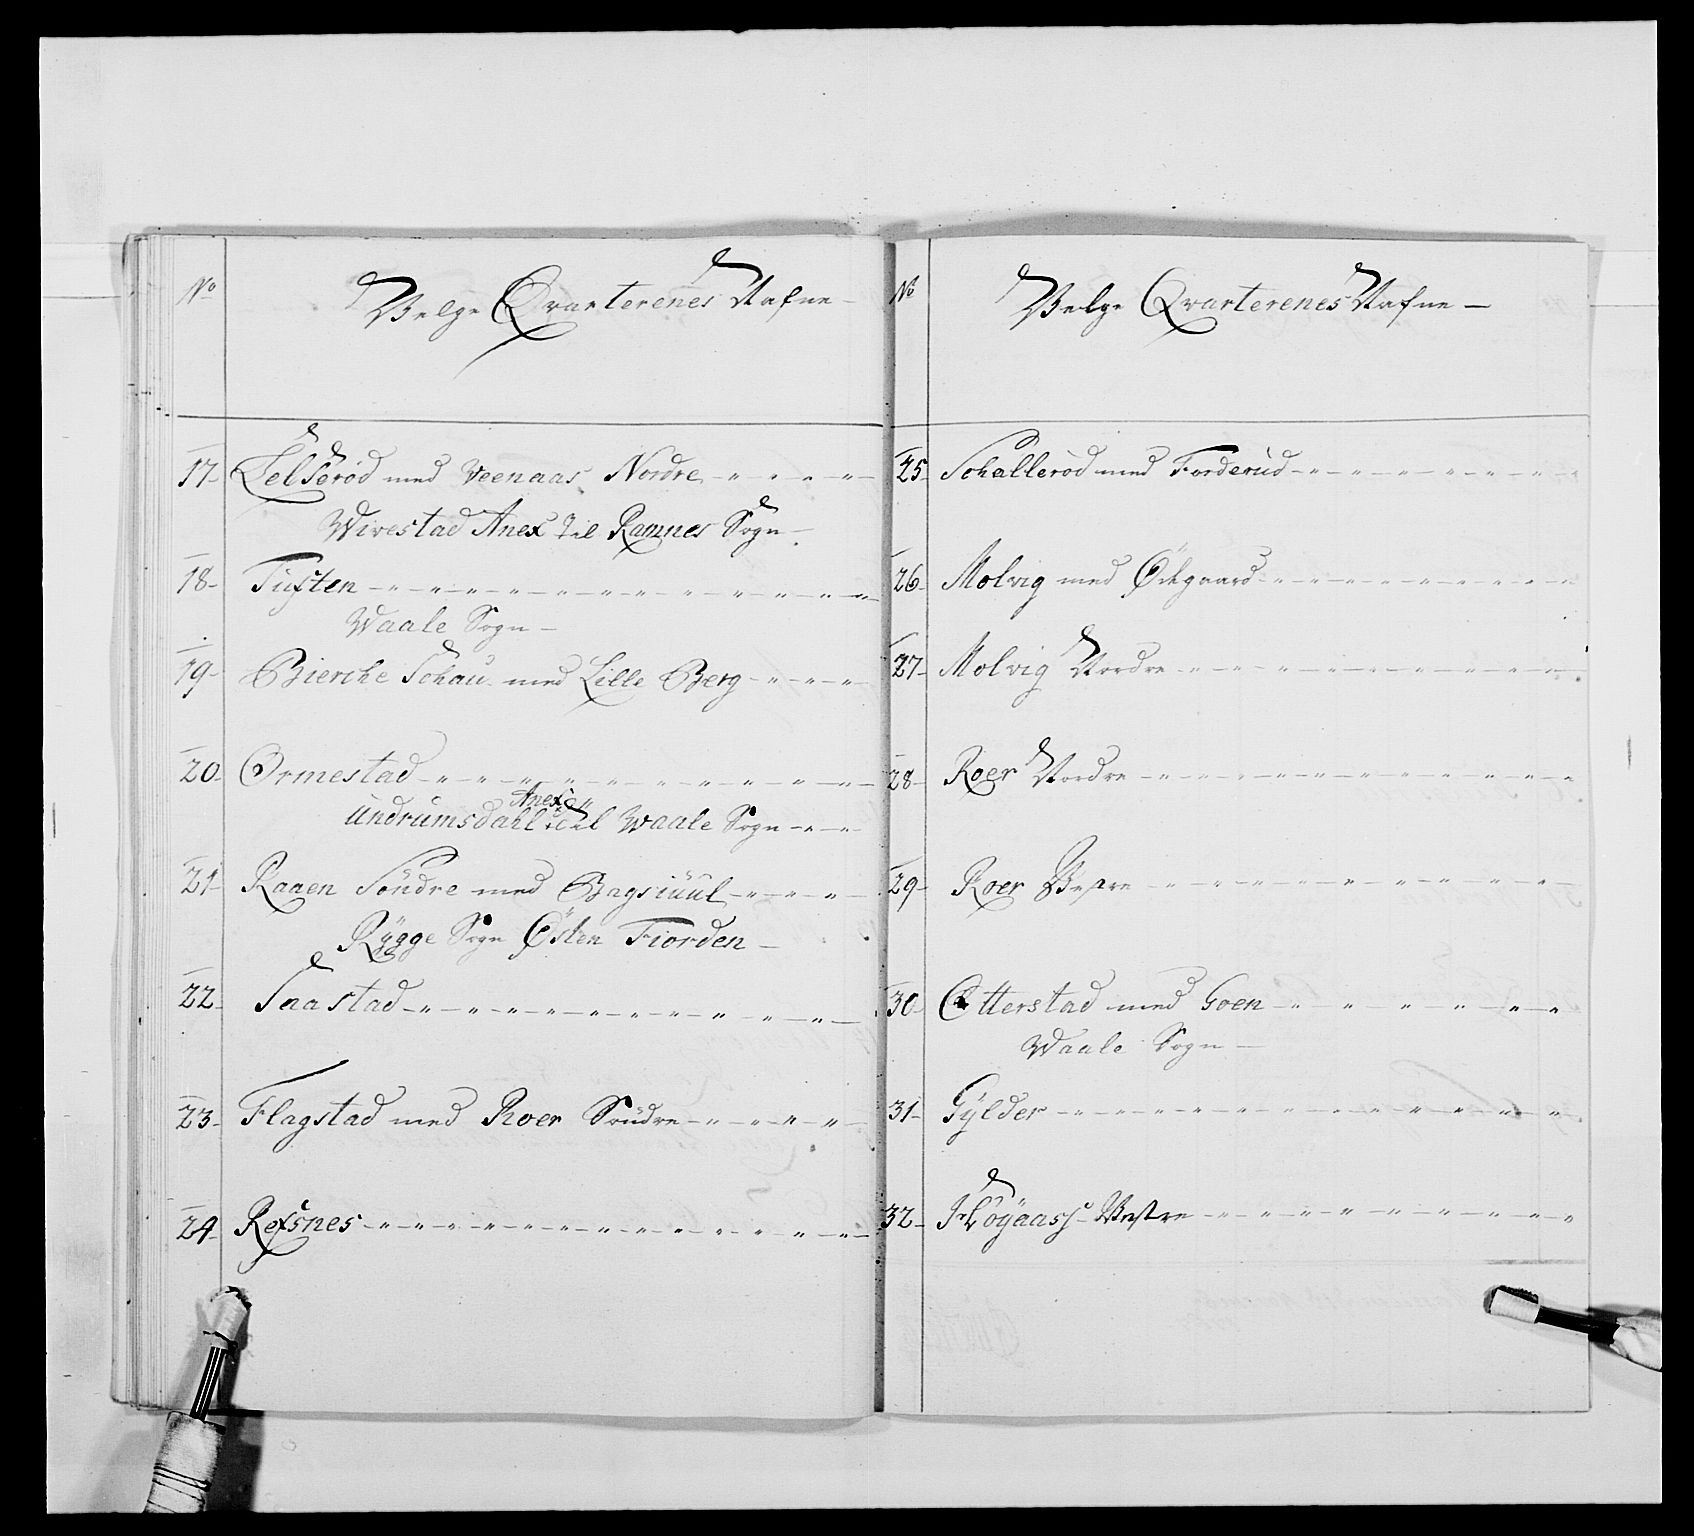 No
Belge Qvarterenes Nafne
17 Lelserød med Veenaas Nordre
Wivestad Anex til Ramnes Sogn
18 Tuften
Waale Sogn
19 Bierche Schau med Lille Berg
20 Ormestad
Undrumsdahl Anex til Waale Sogn
21 Raaen Söndre med Bagsiuul
Rygge Sogn Östen Fiorden
22 Saastad
23 Flagstad med Roer Söndre
24 Refsnes
No
Belge Qvarterenes Nafne
25 Schallerød med Forderud
26 Molvig med Ödegaard
27 Molvig Nordre
28 Roer Nordre
29 Roer Vestre
30 Otterstad med Goen
Waale Sogn
31 Gylder
32 Vestre